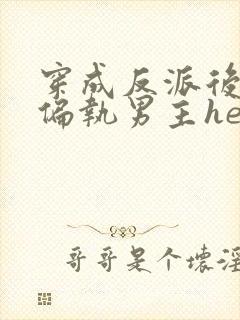 穿成反派後
偏執男主he
哥哥是个壞淫